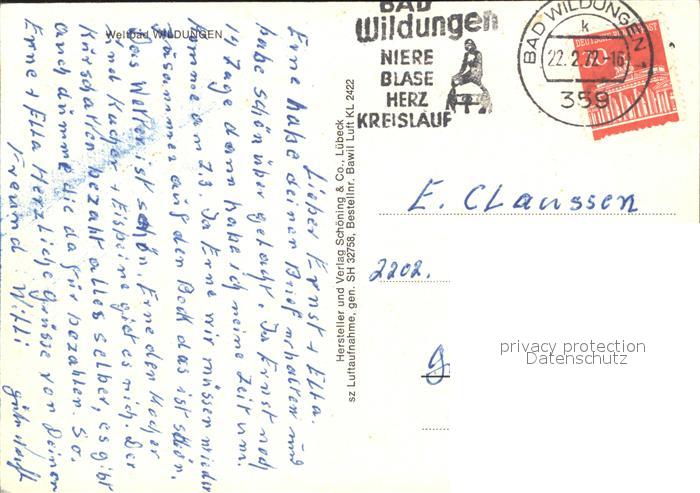 Weltbad WILDUNGEN
Lieber Ernst + Elta.
Erne habe deinen Brief erhalten und
habe schön über gelacht. Ja Ernst noch
14 Tage dann habe ich meine Zeit um.
Komme am 7.3. Ja Erne wir müssen wieder
zusammer auf den Bock das ist schön.
Das Wetter ist schön Erne den
und Kuchen + Eisbeine gibt es nich. Der
Kurschatten bezahlt alles selber, es gibt
auch dumme die dafür bezahlen. So.
Erne + Elta Herzliche Grüsse von Deinen
Freund Willi
Hersteller und Verlag Schöning & Co., Lübeck
sz Luftaufnahme, gen. SH 32758, Bestellnr. Bawil Luft KL 2422
BAD
Wildungen
NIERE
BLASE
HERZ
KREISLAUF
BAD WILDUNGEN 2
k
22.2.72-16
359
DEUTSCHE BUNDESPOST
E. Claussen
2202.
privacy protection
Datenschutz